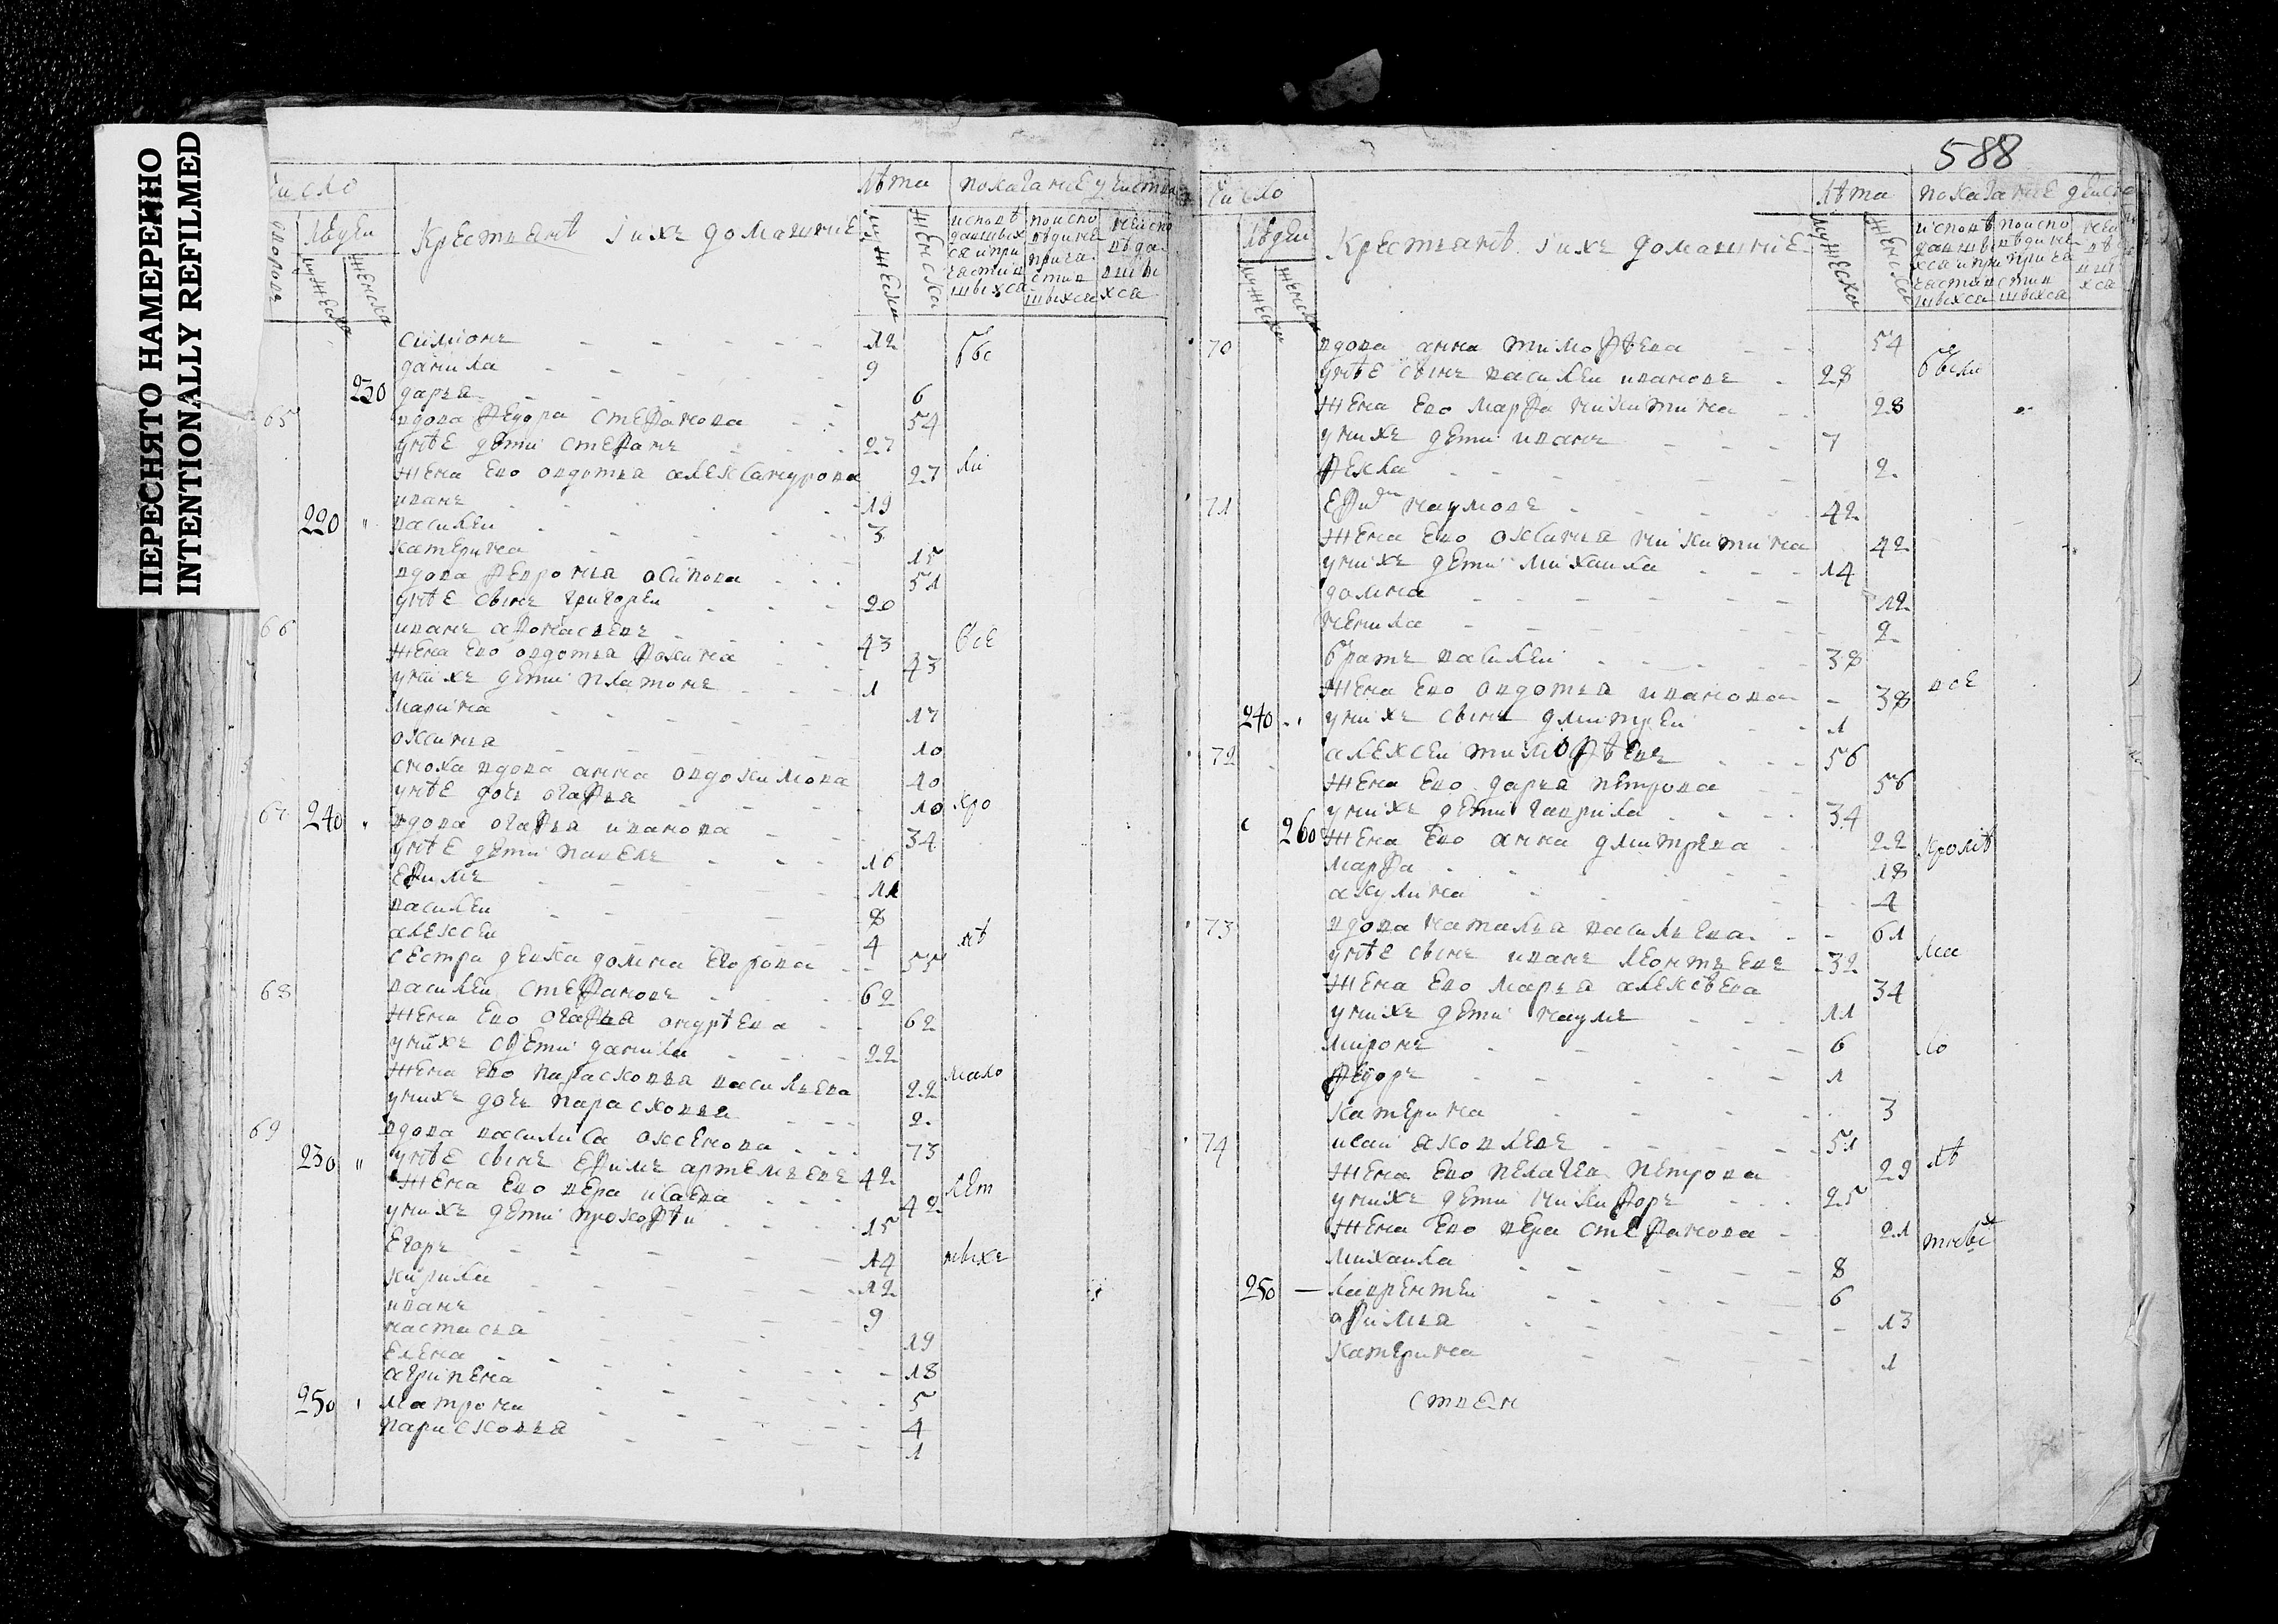 ПЕРЕСНЯТО НАМЕРЕННО
INTENTIONALLY REFILMED
число
людеи
мужеска
женска
крестьянѣ iихъ домашние
лѣта
мужеска
женска
показание
исповѣдавшихся и причастившихся
симионъ 12
данила 9
230 дарья 6
65 вдова федора стефанова 54
унѣе дети стефанъ 27
жена ево овдотья александрова 27
иванъ 19
220 василеи 3
катерина 15
вдова февронья осипова 51
унѣе сынъ григореи 20
66 иванъ афонасьевъ 43
жена ево овдотья фокина 43
унихъ дети платонъ 1
марина 17
оксинья 10
сноха вдова анна овдокимова 40
унѣе дочь огафья 10
67 240 вдова огафья иванова 34
унѣе дети павелъ 16
ефимъ 11
василеи 8
алексеи 4
сестра девка домна егорова 55
68 василеи стефановъ 62
жена ево огафья ондрѣева 62
унихъ дети данила 22
жена ево парасковья васильева 22
унихъ дочь парасковья 2
69 вдова василиса оксенова 73
230 унѣе сынъ ефимъ артемьевъ 42
жена ево вера исаева 42
унихъ дети прокофеи 15
егоръ 14
кирила 12
иванъ 9
настасья 19
елена 18
агрипена 5
250 матрона 4
парасковья 1
588
число
людеи
мужеска
женска
крестьянѣ iихъ домашние
лѣта
мужеска
женска
показание
70 вдова анна тимофѣева 54
унѣе сынъ василеи ивановъ 28
жена ево марфа никитина 28
унихъ дети иванъ 7
фекла 2
71 ефимъ наумовъ 42
жена ево оксинья никитина 42
унихъ дети михаила 14
домна 12
ненила 2
братъ василеи 38
жена ево овдотья иванова 38
240 унихъ сынъ дмитреи 1
72 алексеи тимофѣевъ 56
жена ево дарья петрова 56
унихъ дети гаврила 34
260 жена ево анна дмитрева 22
марфа 18
акулина 4
73 вдова наталья васильева 61
унѣе сынъ иванъ леонтьевъ 32
жена ево марья алексѣева 34
унихъ дети наумъ 11
миронъ 6
федоръ 1
катерина 3
74 исаи яковлевъ 51
жена ево пелагея петрова 29
унихъ дети никифоръ 25
жена ево вера стефанова 21
михаила 8
250 лаврентеи 6
офимья 13
катерина 1